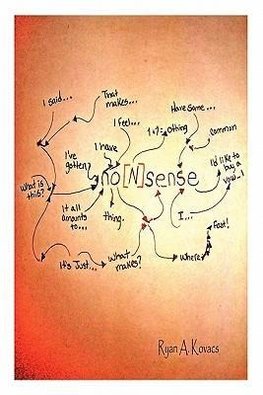 I said...
That
makes...
I feel...
Have some...
1+?= othing
common
I have
I've
gotten?
I'd like to
buy a
vowel
no[N]sense
What is
this?
It all
amounts
to...
thing.
I...
Fast!
It's Just...
What
makes?
Where
Ryan A. Kovacs